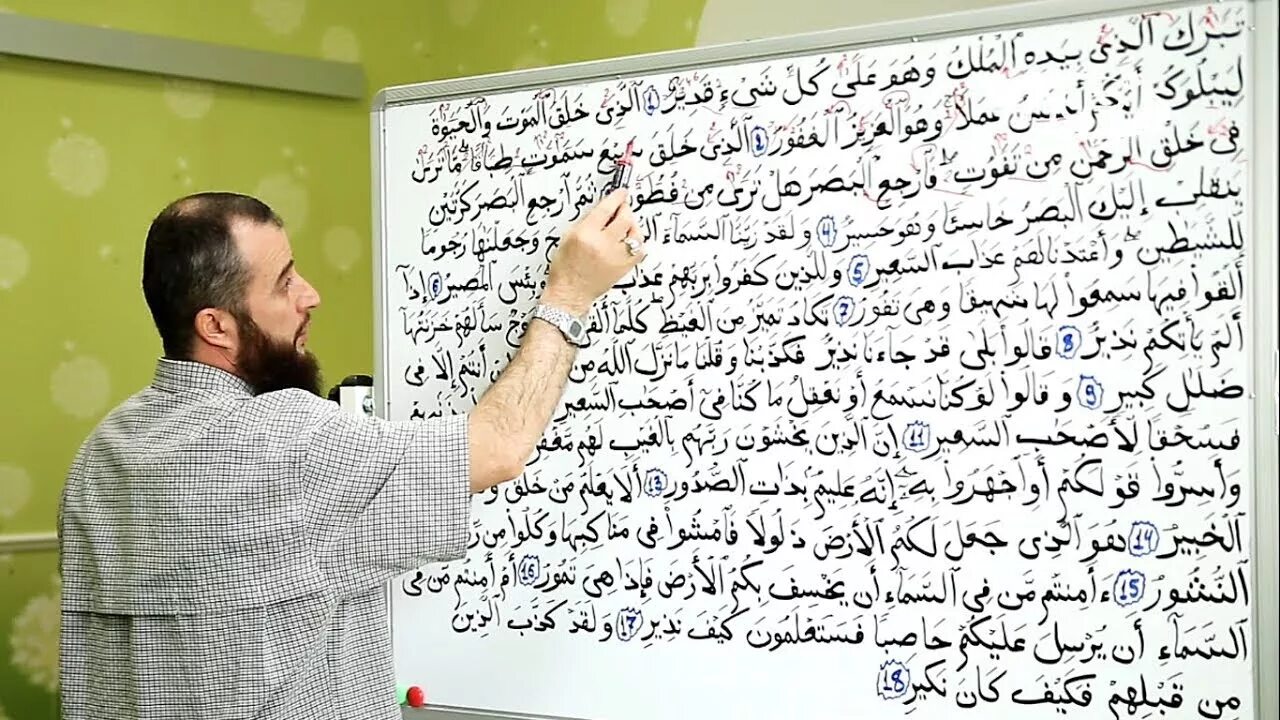 تَبَٰرَكَ ٱلَّذِى بِيَدِهِ ٱلْمُلْكُ وَهُوَ عَلَىٰ كُلِّ شَىْءٍ قَدِيرٌ 1 ٱلَّذِى خَلَقَ ٱلْمَوْتَ وَٱلْحَيَوٰةَ
لِيَبْلُوَكُمْ أَيُّكُمْ أَحْسَنُ عَمَلًا وَهُوَ ٱلْعَزِيزُ ٱلْغَفُورُ 2 ٱلَّذِى خَلَقَ سَبْعَ سَمَٰوَٰتٍ طِبَاقًا مَّا تَرَىٰ
فِى خَلْقِ ٱلرَّحْمَٰنِ مِن تَفَٰوُتٍ فَٱرْجِعِ ٱلْبَصَرَ هَلْ تَرَىٰ مِن فُطُورٍ ثُمَّ ٱرْجِعِ ٱلْبَصَرَ كَرَّتَيْنِ
يَنقَلِبْ إِلَيْكَ ٱلْبَصَرُ خَاسِئًا وَهُوَ حَسِيرٌ 4 وَلَقَدْ زَيَّنَّا ٱلسَّمَآءَ وَجَعَلْنَٰهَا رُجُومًا
لِّلشَّيَٰطِينِ وَأَعْتَدْنَا لَهُمْ عَذَابَ ٱلسَّعِيرِ 5 وَلِلَّذِينَ كَفَرُوا۟ بِرَبِّهِمْ عَذَابُ وَبِئْسَ ٱلْمَصِيرُ 6 إِذَآ
أُلْقُوا۟ فِيهَا سَمِعُوا۟ لَهَا شَهِيقًا وَهِىَ تَفُورُ 7 تَكَادُ تَمَيَّزُ مِنَ ٱلْغَيْظِ كُلَّمَآ أُلْقِىَ فَوْجٌ سَأَلَهُمْ خَزَنَتُهَآ
أَلَمْ يَأْتِكُمْ نَذِيرٌ 8 قَالُوا۟ بَلَىٰ قَدْ جَآءَنَا نَذِيرٌ فَكَذَّبْنَا وَقُلْنَا مَا نَزَّلَ ٱللَّهُ مِن أَنتُمْ إِلَّا فِى
ضَلَٰلٍ كَبِيرٍ 9 وَقَالُوا۟ لَوْ كُنَّا نَسْمَعُ أَوْ نَعْقِلُ مَا كُنَّا فِىٓ أَصْحَٰبِ ٱلسَّعِيرِ
فَسُحْقًا لِّأَصْحَٰبِ ٱلسَّعِيرِ 11 إِنَّ ٱلَّذِينَ يَخْشَوْنَ رَبَّهُم بِٱلْغَيْبِ لَهُم
وَأَسِرُّوا۟ قَوْلَكُمْ أَوِ ٱجْهَرُوا۟ بِهِۦٓ إِنَّهُۥ عَلِيمٌۢ بِذَاتِ ٱلصُّدُورِ 13 أَلَا يَعْلَمُ مَنْ خَلَقَ
ٱلْخَبِيرُ 14 هُوَ ٱلَّذِى جَعَلَ لَكُمُ ٱلْأَرْضَ ذَلُولًا فَٱمْشُوا۟ فِى مَنَاكِبِهَا وَكُلُوا۟ مِن
ٱلنُّشُورُ 15 ءَأَمِنتُم مَّن فِى ٱلسَّمَآءِ أَن يَخْسِفَ بِكُمُ ٱلْأَرْضَ فَإِذَا هِىَ تَمُورُ 16 أَمْ أَمِنتُم مَّن فِى
ٱلسَّمَآءِ أَن يُرْسِلَ عَلَيْكُمْ حَاصِبًا فَسَتَعْلَمُونَ كَيْفَ نَذِيرِ 17 وَلَقَدْ كَذَّبَ ٱلَّذِينَ
مِن قَبْلِهِمْ فَكَيْفَ كَانَ نَكِيرِ 18